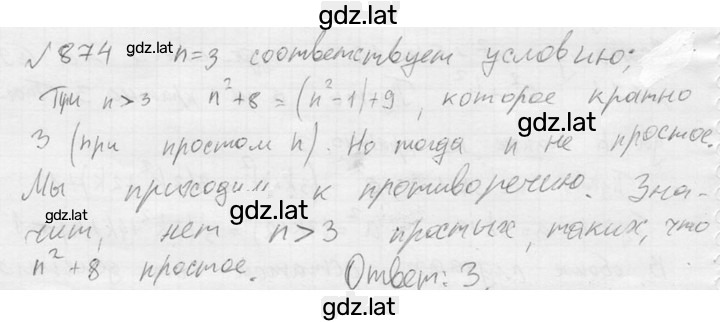 gdz.lat
№ 874 gdz.lat n=3 соответствует условию;
При n>3 n²+8=(n²-1)+9, которое кратно
gdz.lat
3 (при простом n). Но тогда n не простое.
Мы приходим к противоречию. Зна-
gdz.lat
чит, нет n>3 простых, таких, что
n²+8 простое. Ответ: 3.
gdz.lat